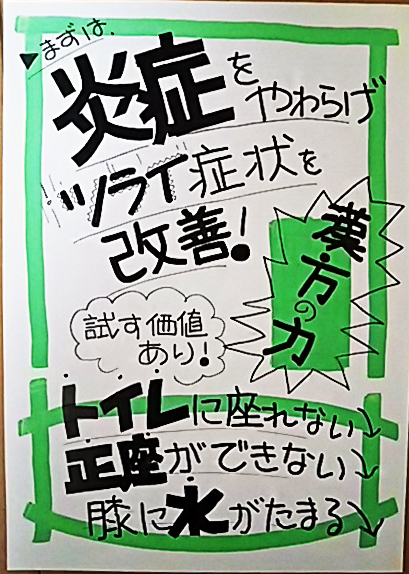 ▶まずは、
炎症を
やわらげ
ツライ症状を
改善!
漢方の力
試す価値
あり!
トイレに座れない
正座ができない
膝に水がたまる